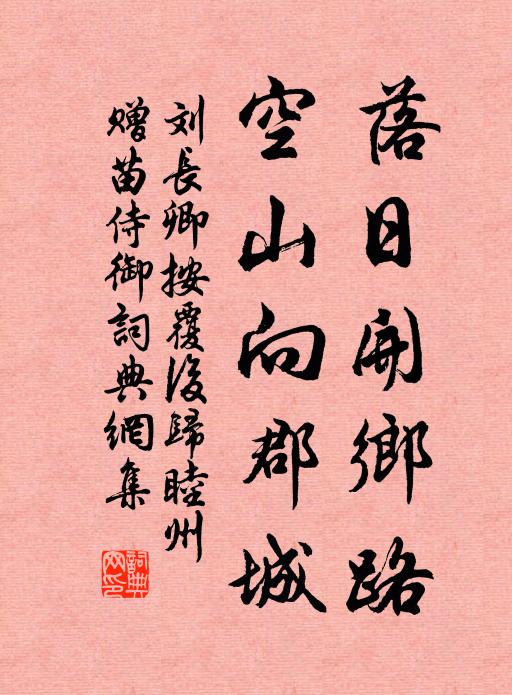 落日開鄉路
空山向郡城
刘長卿按覆後歸睦州
赠苗侍御詞典網集
詞典
网印